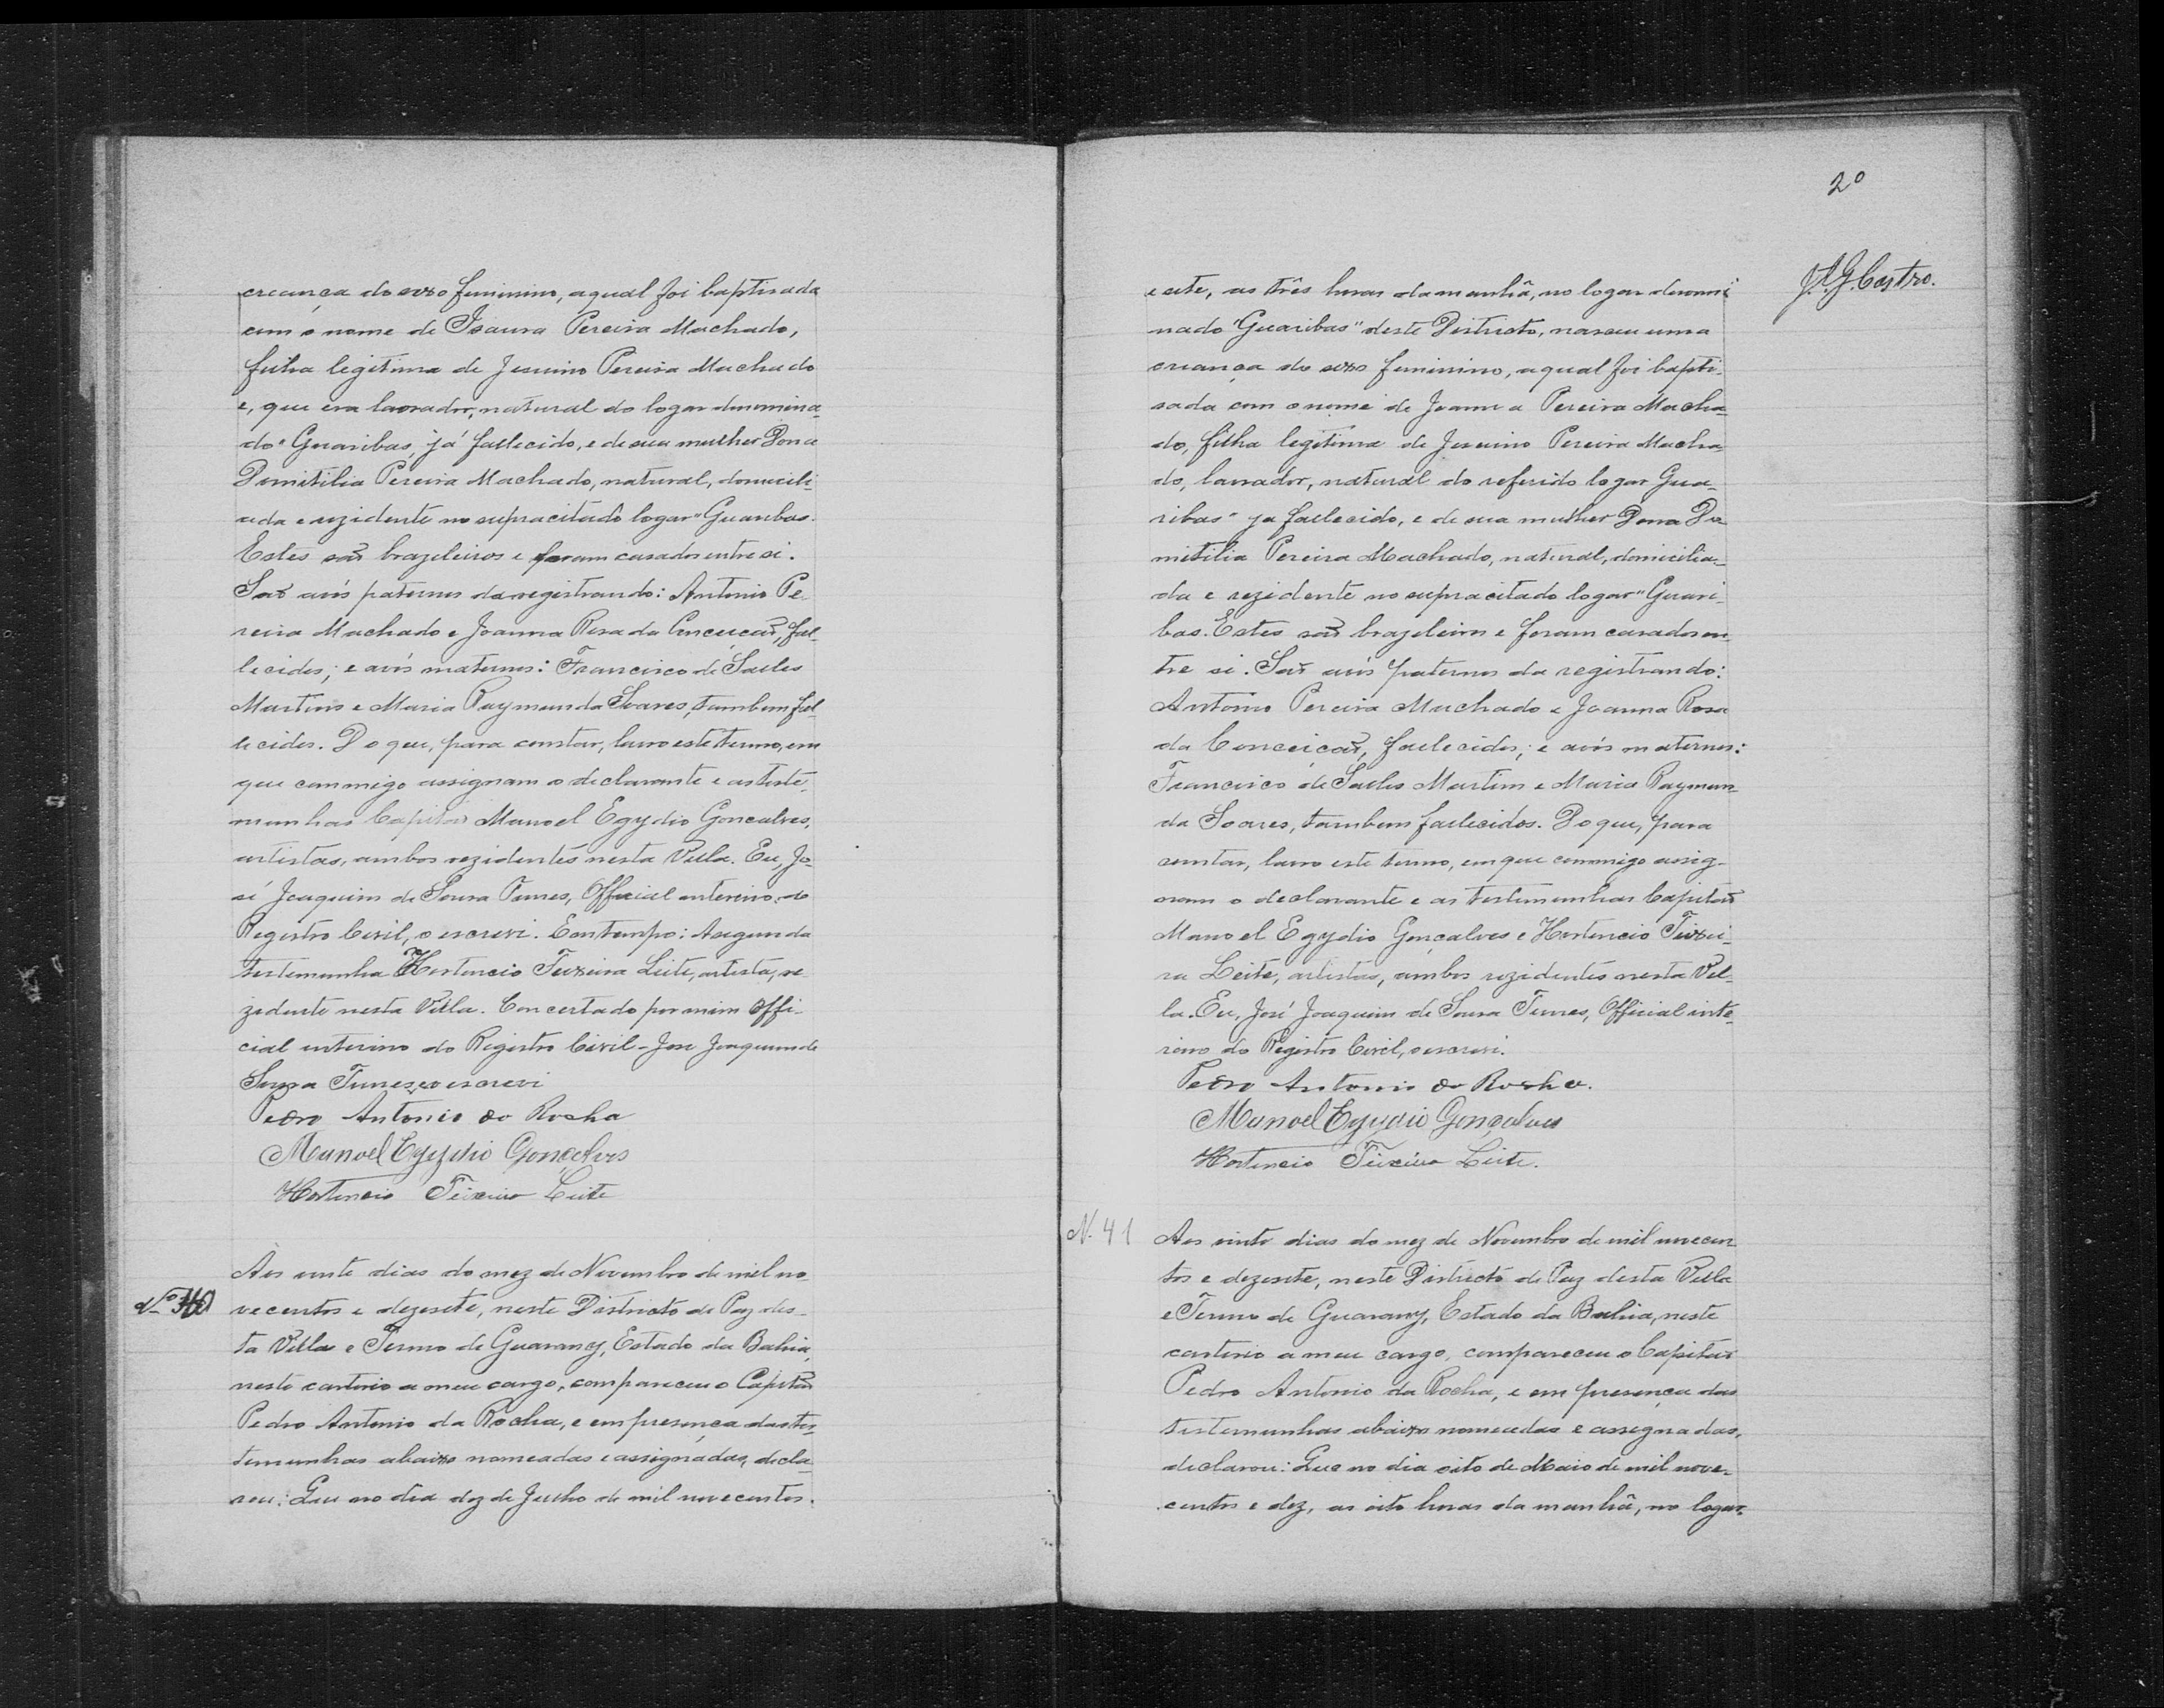 creança do sexo feminino, a qual foi baptisada
com o nome de Isaura Pereira Machado,
filha legitima de Jesuino Pereira Machado
e, que era lavrador, natural do logar denomina-
do "Guaribas, já fallecido, e de sua mulher Dona
Domitilia Pereira Machado, natural, domicili-
ada e rezidente no supracitado logar "Guaribas.
Estes são brazeleiros e foram casados entre si.
São avós paternos da registrando: Antonio Pe-
reira Machado e Joanna Rosa da Conceição, fal-
lecidos; e avós maternos: Francisco de Salles
Martins e Maria Raymunda Soares, tambem fal-
lecidos. Do que, para constar, lavro este termo, em
que commigo assignam o declarante e as teste-
munhas Capitão Manoel Egydio Goncalves,
artistas, ambos rezidentes nesta Villa. Eu, Jo-
sé Joaquim de Sousa Tunes, Official interino do
Registro Civil, o escrevi. Em tempo: A segunda
testemunha Hortencio Teixeira Leite, artista, re-
zidente nesta Villa. Concertado por mim Offi-
cial interino do Registro Civil - Jose Joaquim de
Sousa Tunes, o escrevi
Pedro Antonio da Rocha
Manoel Egydio Gonçalves
Hortencio Teixeira Leite
Nº 40
Aos vinte dias do mez de Novembro de mil no-
vecentos e dezesete, neste Districto de Paz des-
ta Villa e Termo de Guarany, Estado da Bahia,
neste cartorio a meu cargo, compareceu o Capitão
Pedro Antonio da Rocha, e em presença das tes-
temunhas abaixo nomeadas e assignadas, decla-
rou: Que no dia dez de Julho de mil novecentos.
20
J.A.G. Castro.
e sete, as três horas da manhã, no logar denomi
nado "Guaribas" deste Districto, nasceu uma
creança do sexo feminino, a qual foi bapti-
sada com o nome de Joanna Pereira Macha-
do, filha legitima de Jesuino Pereira Macha-
do, lavrador, natural do referido logar Gua-
ribas" ja fallecido, e de sua mulher Dona Do-
mitilia Pereira Machado, natural, domicilia-
da e rezidente no supracitado logar "Guari-
bas. Estes são brazeleiros e foram casados en-
tre si. São avós paternos da registrando:
Antonio Pereira Machado e Joanna Rosa
da Conceição, fallecidos; e avós maternos:
Francisco de Salles Martins e Maria Raymun-
da Soares, tambem fallecidos. Do que, para
constar, lavro este termo, em que commigo assig-
nam o declarante e as testemunhas Capitão
Manoel Egydio Gonçalves e Hortencio Teixei-
ra Leite, artistas, ambos rezidentes nesta Vil-
la. Eu, José Joaquim de Sousa Tunes, Official inte-
rino do Registro Civil, o escrevi.
Pedro Antonio da Rocha.
Manoel Egydio Gonçalves
Hortencio Teixeira Leite.
N. 41
Aos vinte dias do mez de Novembro de mil novecen-
tos e dezesete, neste Districto de Paz desta Villa
e Termo de Guarany, Estado da Bahia, neste
cartorio a meu cargo, compareceu o Capitão
Pedro Antonio da Rocha, e em presença das
testemunhas abaixo nomeadas e assignadas,
declarou: Que no dia oito de Maio de mil nove-
centos e dez, as oito horas da manhã, no logar